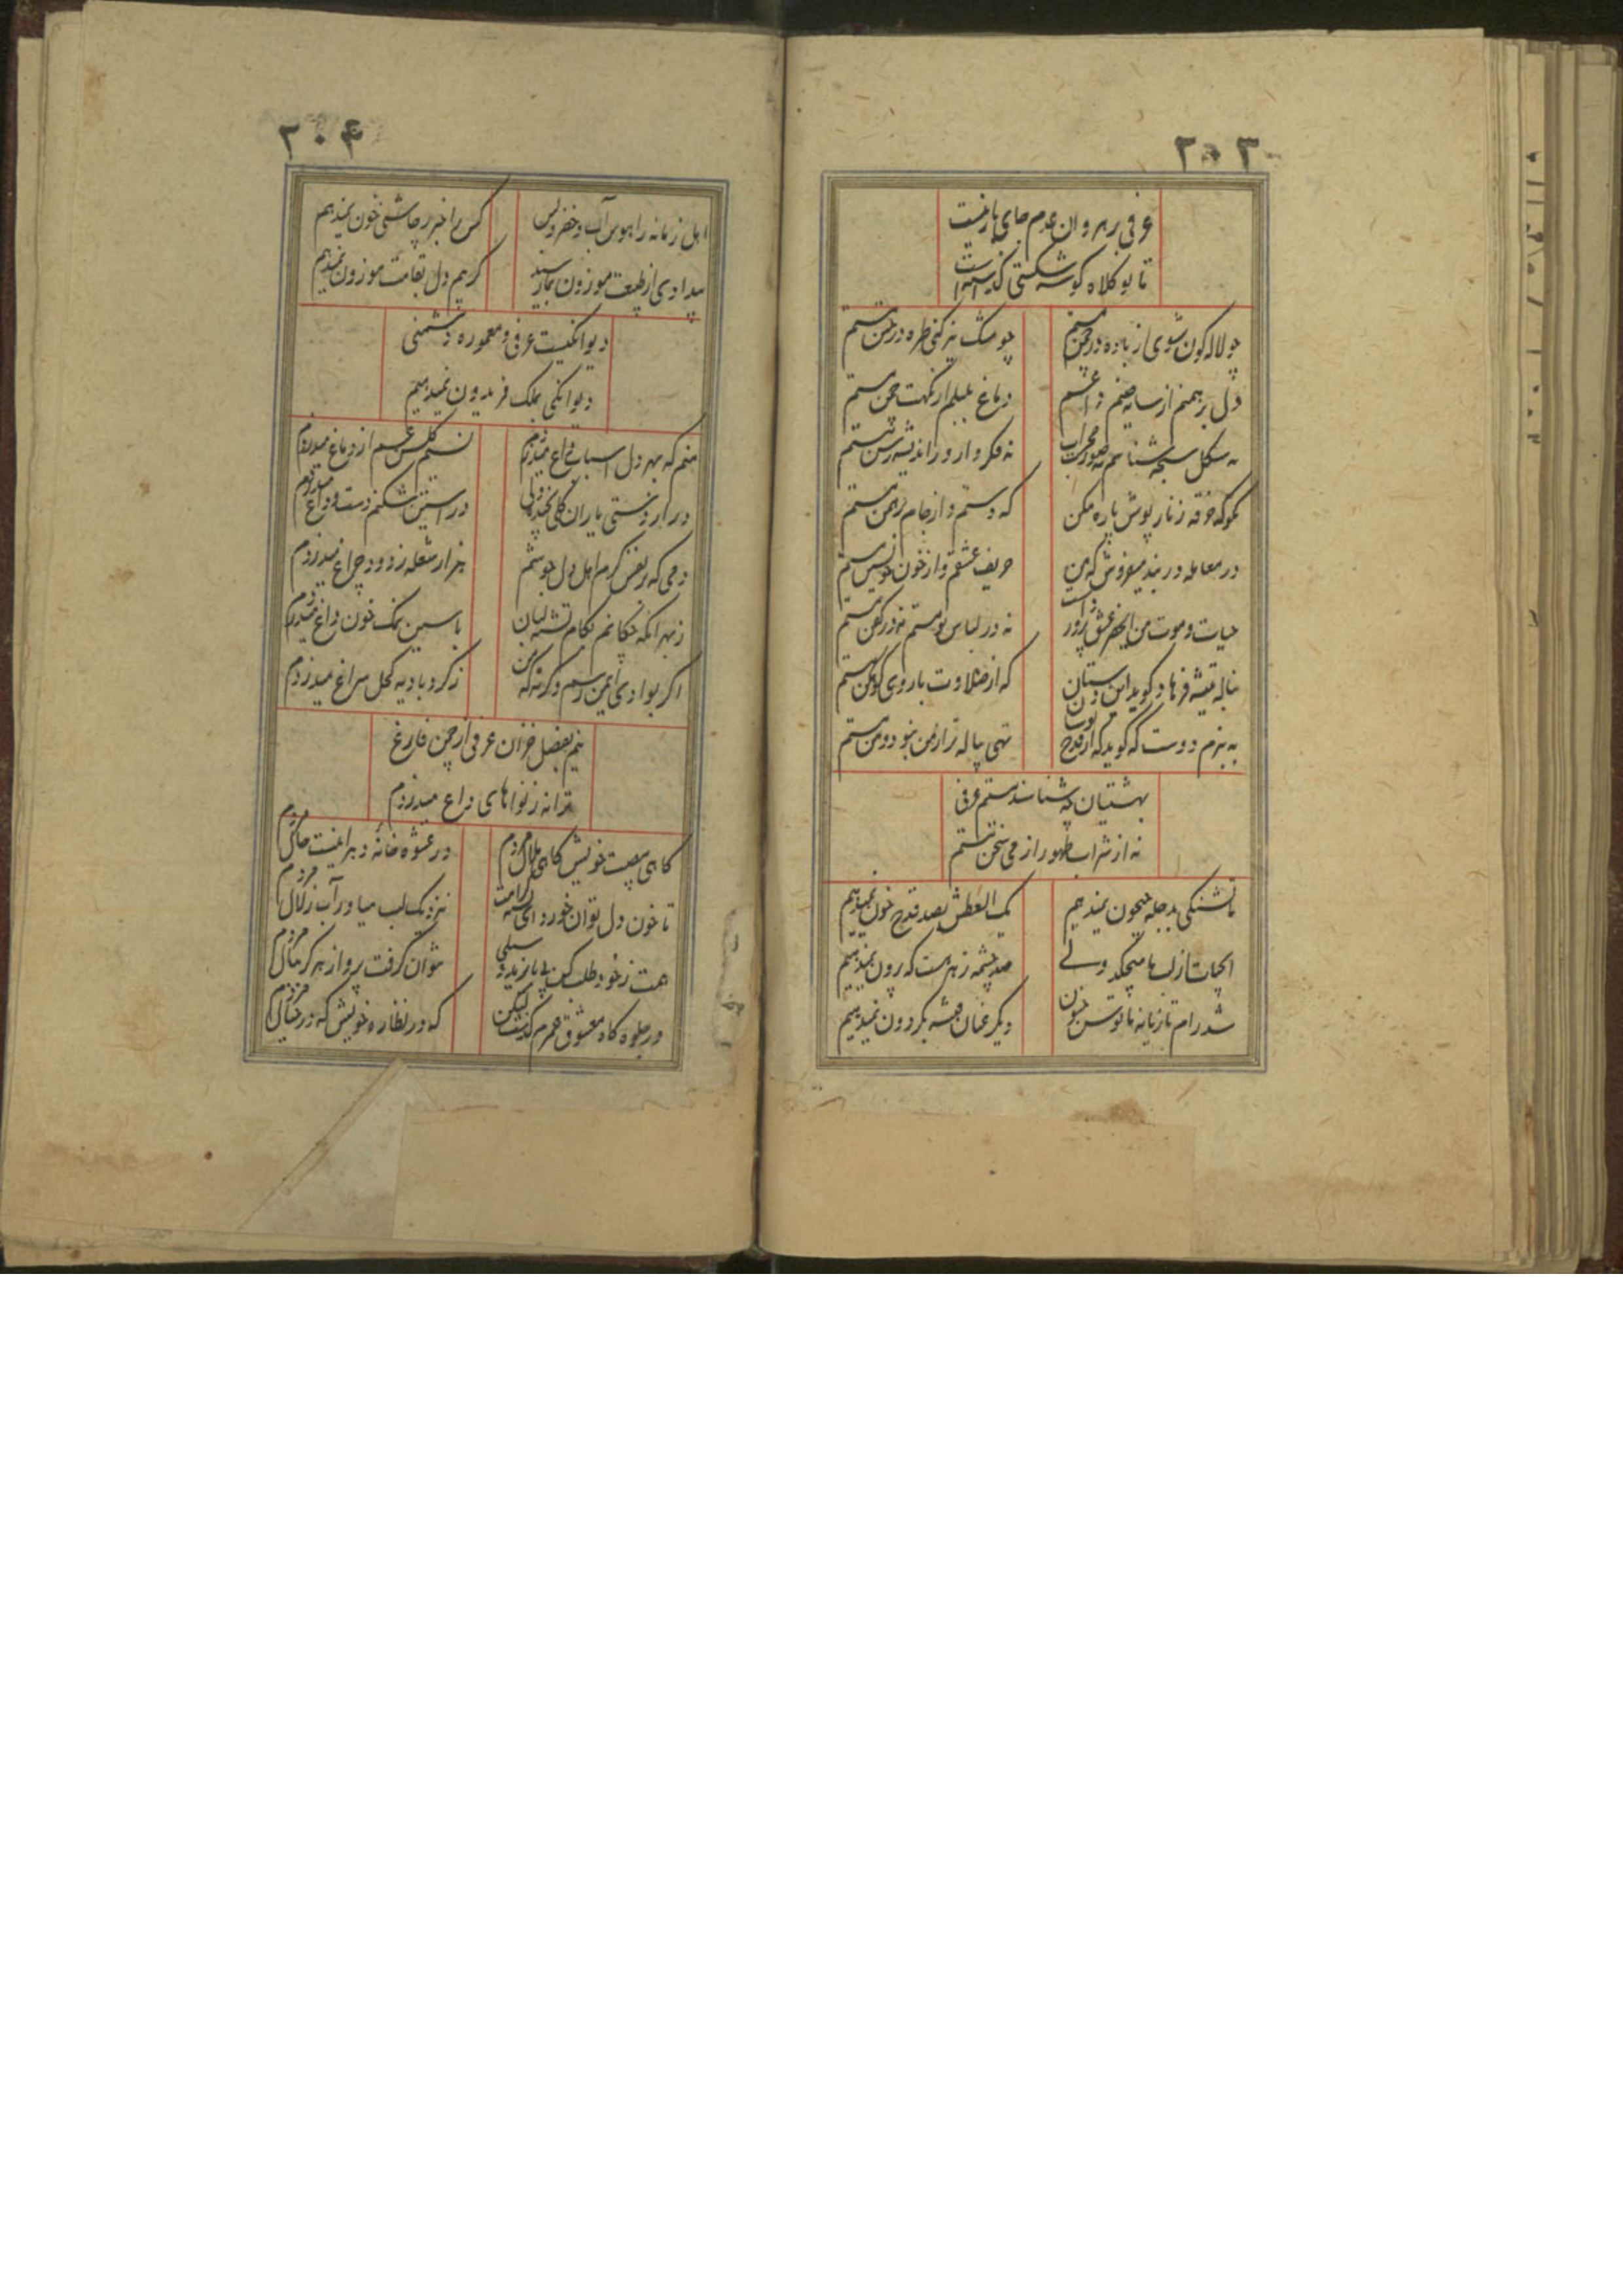 ۲۰۳
عرفی رهروان عدم جای باز نیست
تا بو کلاه گوشه شکستی
چو لاله گون شوی از باده در چمن مستم چو مشک بیز کنی طره در ختن مستم
دل برهمنم از سایه صنم داغم دماغ بلبلم از نکهت چمن مستم
نه شکل سبحه شناسم نه صورت محراب نه فکر دار و رسن اندیشه مستم
مگو که خرقه زنار پوش پاره مکن که مستم و از جام برهمن مستم
در معامله در بند میفروش که من حریف عشقم و از خون خویشتن مستم
حیات و موت من از بهر عشق نه در لباس نو مستم نه در کفن مستم
بناله تیشه فرهاد گوید این دستان که از حلاوت بازوی کوهکن مستم
به بزم دوست که گوید که از قدح تهی پیاله تر از من نبود و من مستم
بهشتیان چه شناسند مستیم عرفی
نه از شراب طهور از می سخن مستم
ما تشنگی بدجله جیحون نمیدهیم یک العطش بصد قدح خون نمیدهیم
الحیات از لب ما میچکد ولی صد چشمه زهر هست که بیرون نمیدهیم
شد رام تازیانه ما توسن جنون دیگر عنان فتنه بگردون نمیدهیم
۲۰۴
اهل زمانه را هوس آب خضر و بس کس را خبر ز چاشنی خون نمیدهیم
بیدادی از طبیعت موزون بما رسید گر هم دل بقامت موزون نمیدهیم
دیوانگیست عرفی و معموره دشمنی
دیوانگی بملک فریدون نمیدهیم
منم که بهر دل اسباب داغ میدزدم نسیم گلشن غم از دماغ میدزدم
در آستین شکنم دست و داغ میدزدم
دمی که از نفس گرم اهل دل جوشم هزار شعله ز دود چراغ میدزدم
ز بهر آنکه چکانم بکام تشنه لبان یاسمین نمک خون داغ میدزدم
اگر بوادی ایمن رسم وگرنه که من ز گرد بادیه کحل سراغ میدزدم
نیم بفصل خزان عرفی از چمن فارغ
ترانه ز نواهای زاغ میدزدم
گاهی بعیب خویش گاهی ملال مردم در عشوه خانه دهر اینست حال مردم
تا خون دل توان خورد ای تشنه کرامت نزدیک لب میاور آب زلال مردم
همت ز خود طلب کن با بایزید و سلمی نتوان گرفت پرواز هرگز ببال مردم
در جلوه گاه معشوق عمرم گذشت لیکن گه در نظاره خویش گه در خیال مردم